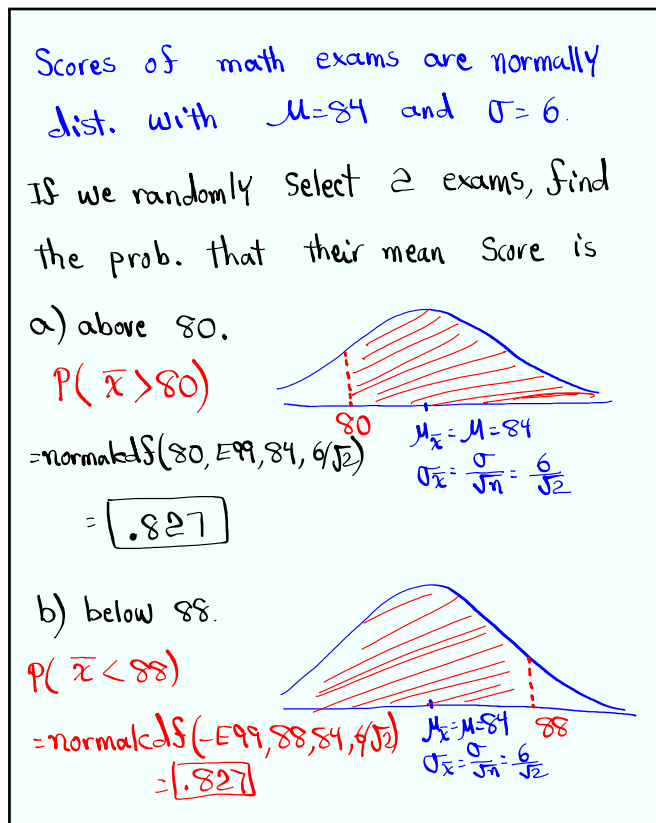 Scores of math exams are normally
dist. with μ=84 and σ=6.
If we randomly Select 2 exams, find
the prob. that their mean Score is
a) above 80.
P(x̄>80)
80
=normalcdf(80, E99, 84, 6/√2)
μx̄=μ=84
σx̄=σ/√n=6/√2
=.827
b) below 88.
P(x̄<88)
=normalcdf(-E99,88,84,6/√2)
μx̄=μ=84
88
σx̄=σ/√n=6/√2
=.827